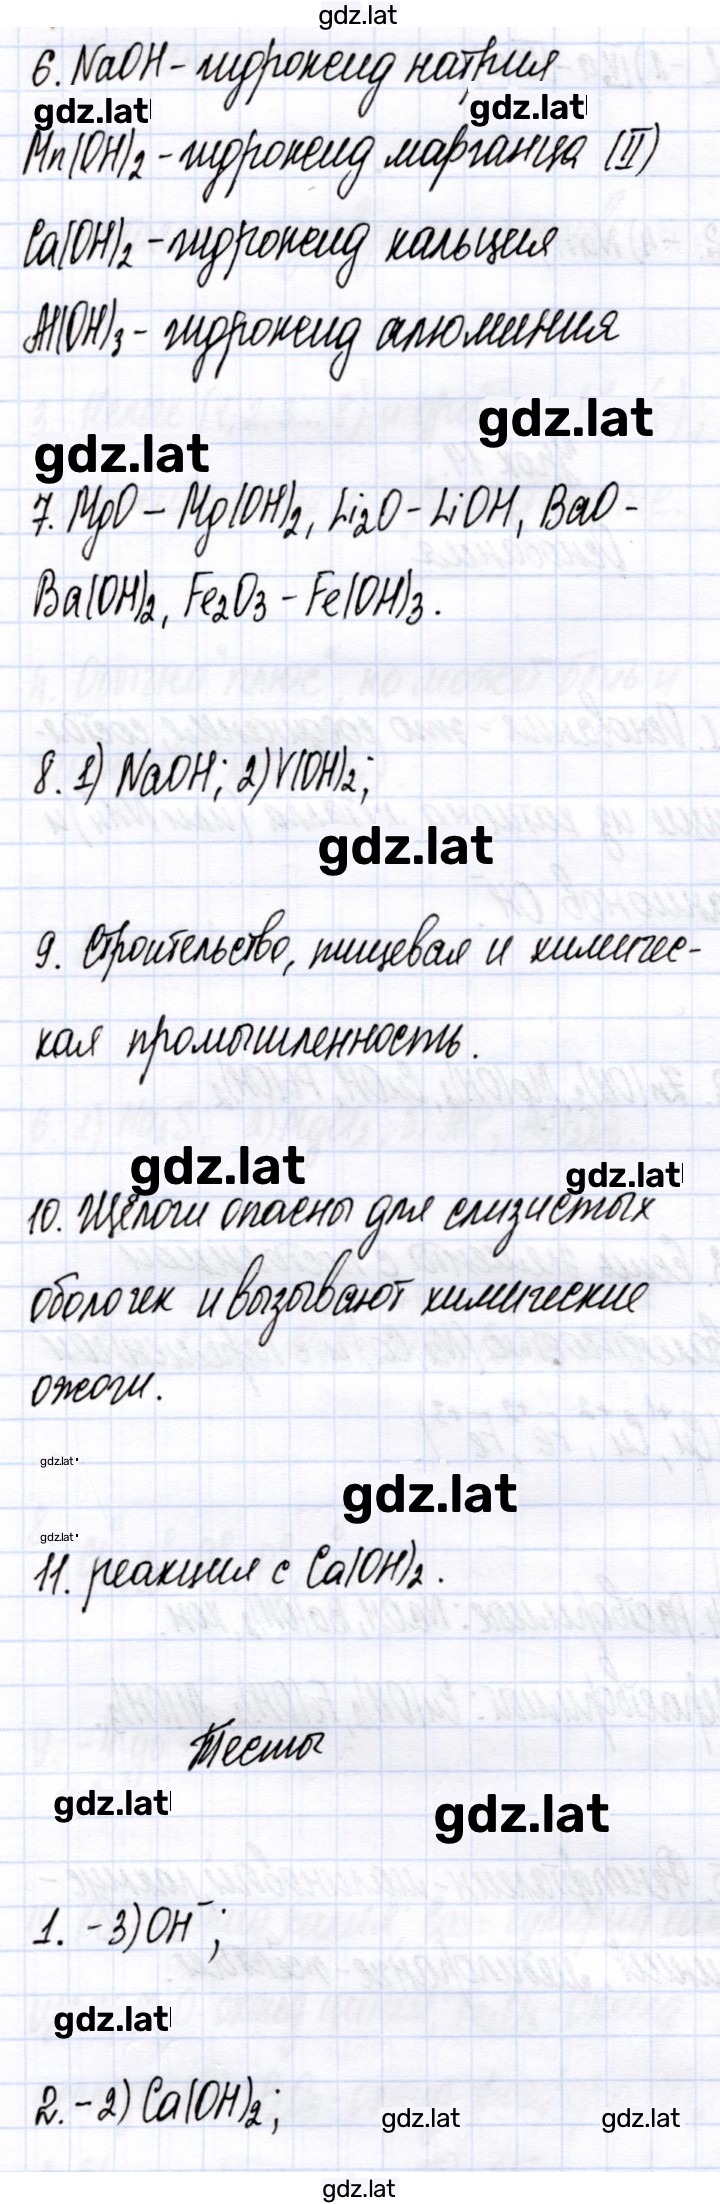 gdz.lat
6. NaOH - гидроксид натрия
gdz.lat gdz.lat
Mn(OH)₂ - гидроксид марганца (II)
Ca(OH)₂ - гидроксид кальция
Al(OH)₃ - гидроксид алюминия
gdz.lat
gdz.lat
7. MgO - Mg(OH)₂, Li₂O - LiOH, BaO -
Ba(OH)₂, Fe₂O₃ - Fe(OH)₃.
8. 1) NaOH; 2) V(OH)₂;
gdz.lat
9. Строительство, пищевая и химичес-
кая промышленность.
gdz.lat gdz.lat
10. Щёлочи опасны для слизистых
оболочек и вызывают химические
ожоги.
gdz.lat
gdz.lat
gdz.lat
11. реакция с Ca(OH)₂.
Тесты
gdz.lat gdz.lat
1. - 3) OH⁻;
gdz.lat
2. - 2) Ca(OH)₂;
gdz.lat gdz.lat
gdz.lat